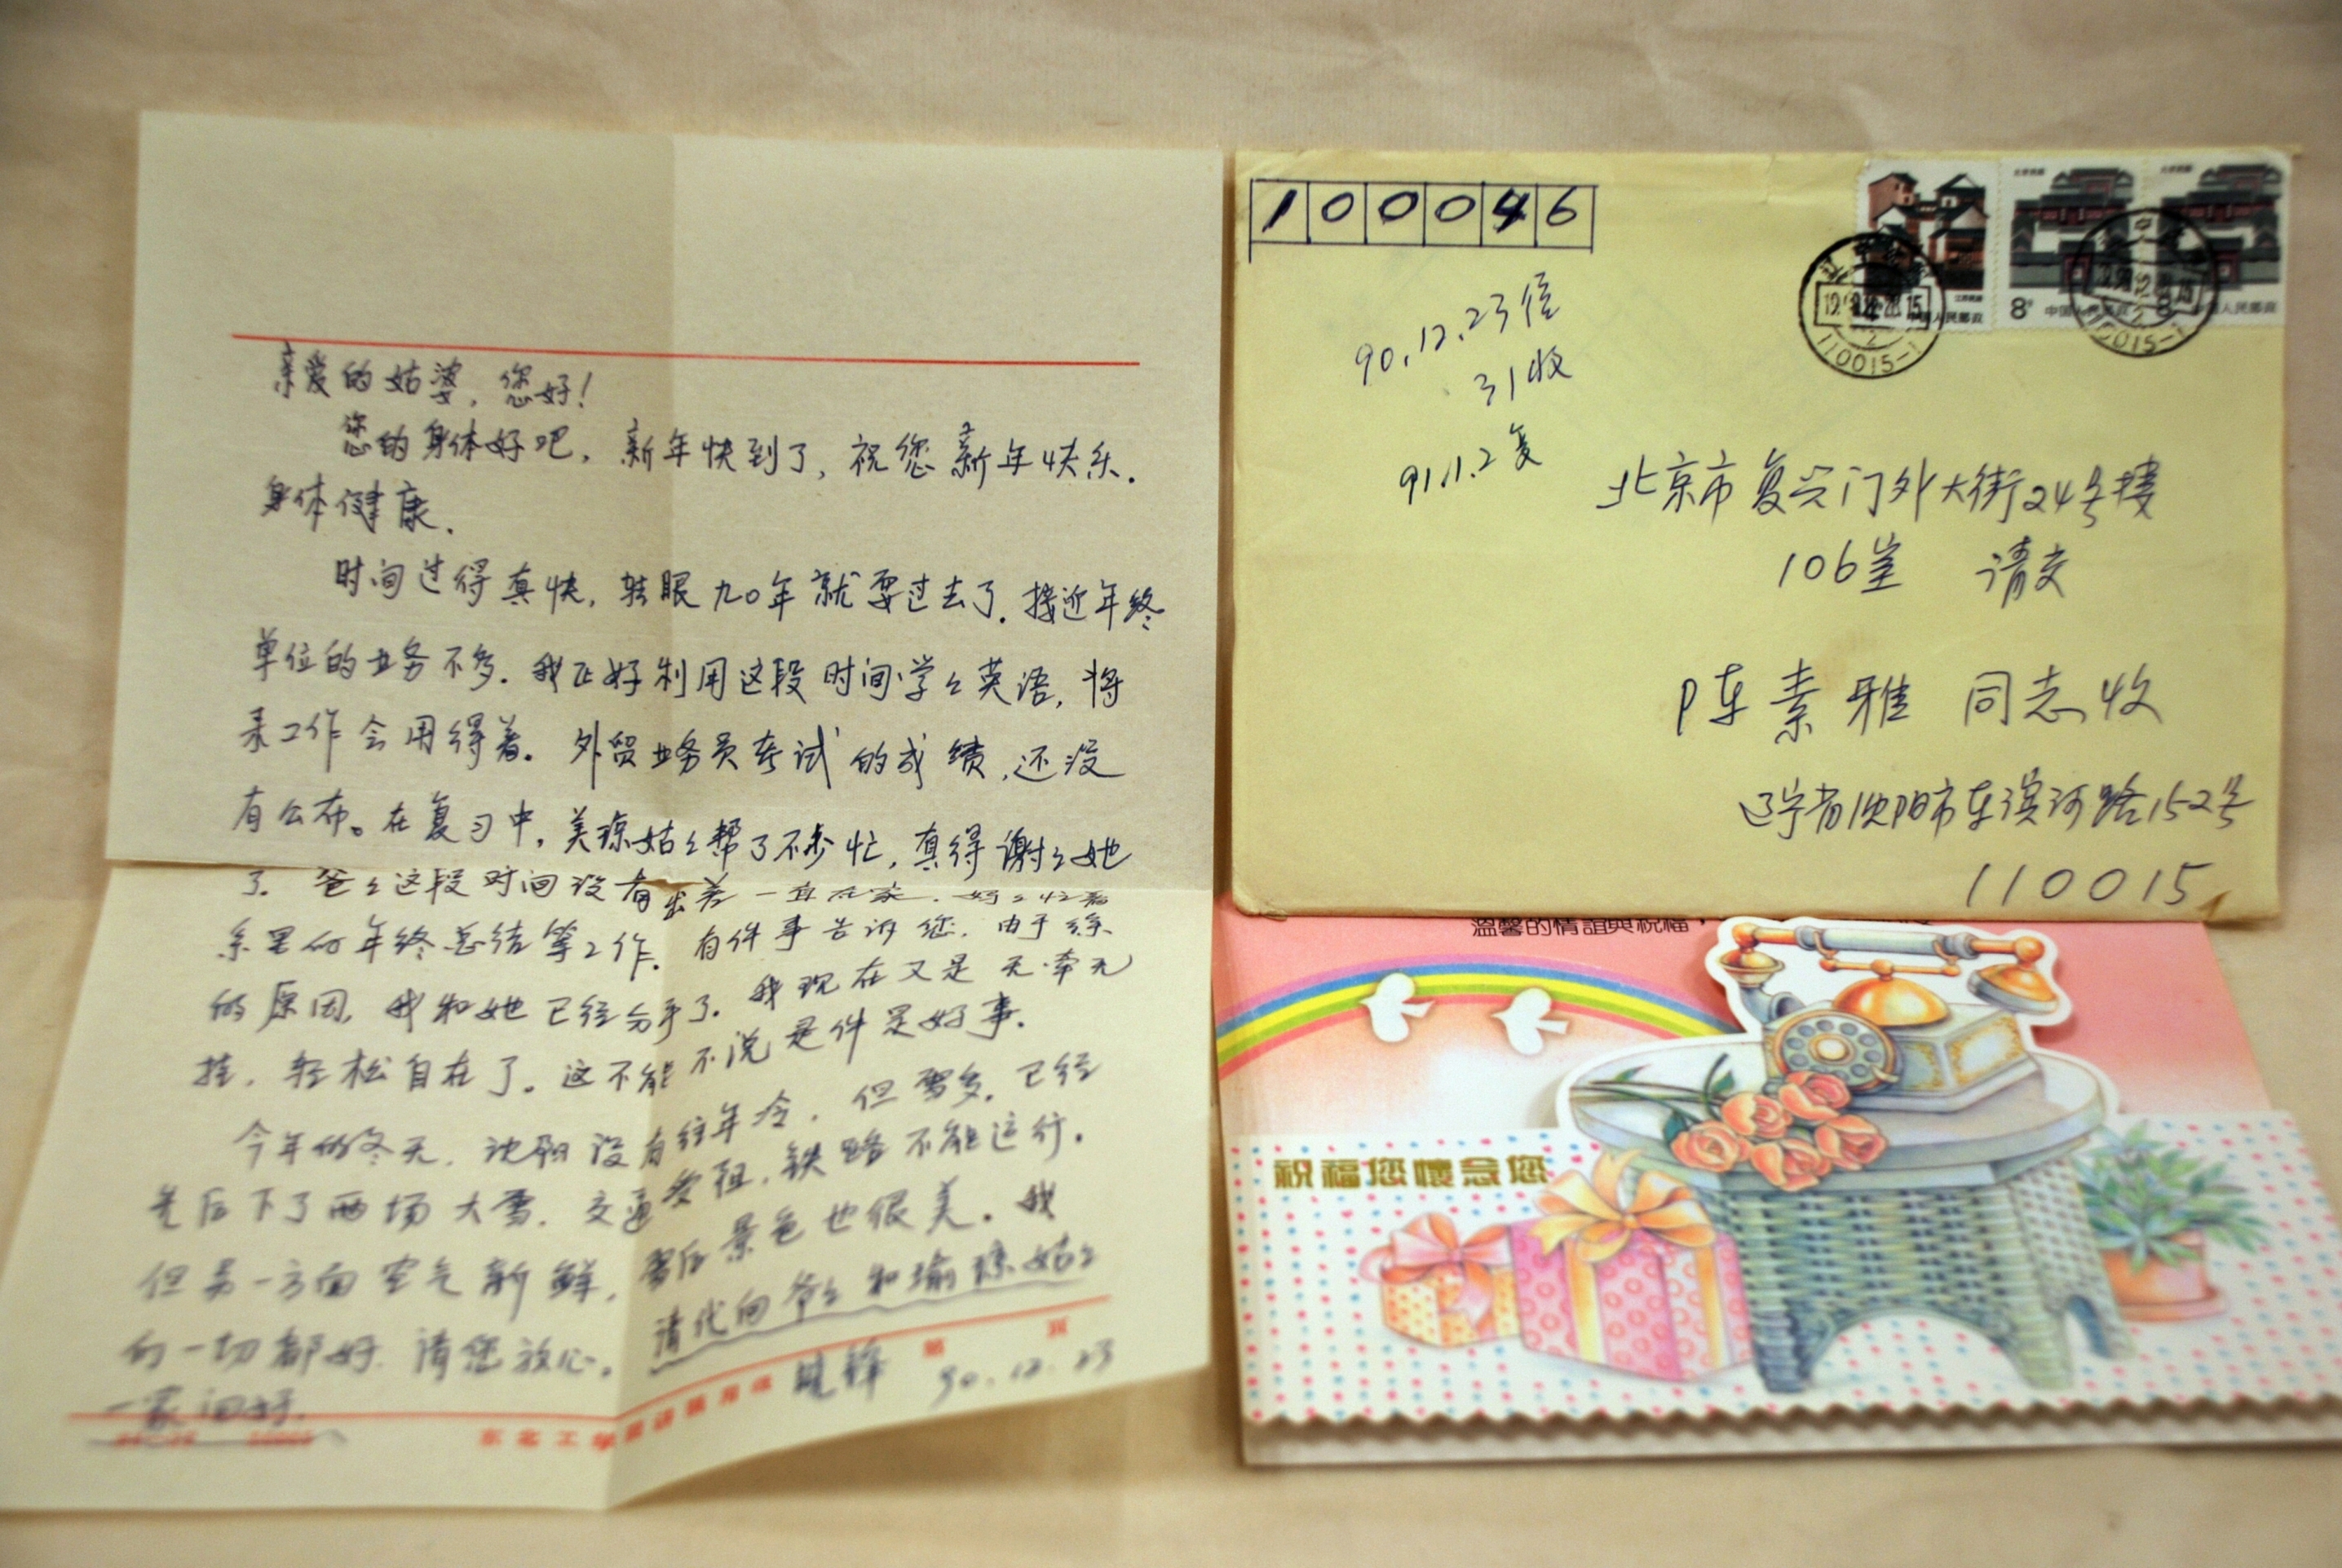 亲爱的姑婆，您好！
您的身体好吧，新年快到了，祝您新年快乐．
身体健康．
时间过得真快，转眼九〇年就要过去了．接近年终
单位的业务不多．我正好利用这段时间学々英语，将
来工作会用得着。外贸业务员考试的成绩，还没
有公布。在复习中，美琼姑々帮了不少忙，真得谢々她
了．爸々这段时间没有出差一直在家．妈々忙着
系里的年终总结等工作．有件事告诉您．由于
的原因，我和她已经分手了．我现在又是无牵无
挂，轻松自在了。这不能不说是件是好事．
今年的冬天，沈阳没有往年冷，但雪多．已经
先后下了两场大雪．交通受阻，铁路不能运行．
但另一方面空气新鲜，雪后景色也很美．我
的一切都好．请您放心．请代向爷々和瑜琼姑々
一家问好．
晓锋
90.12.23
第 页
100046
90.12.23信
31收
91.1.2复
北京市复兴门外大街24号楼
106室 请交
陈素雅 同志收
辽宁省沈阳市东滨河路152号
110015
8分 中国人民邮政
8分 中国人民邮政
中国人民邮政
110015-1
溫馨的情誼與祝福，
祝福您懷念您